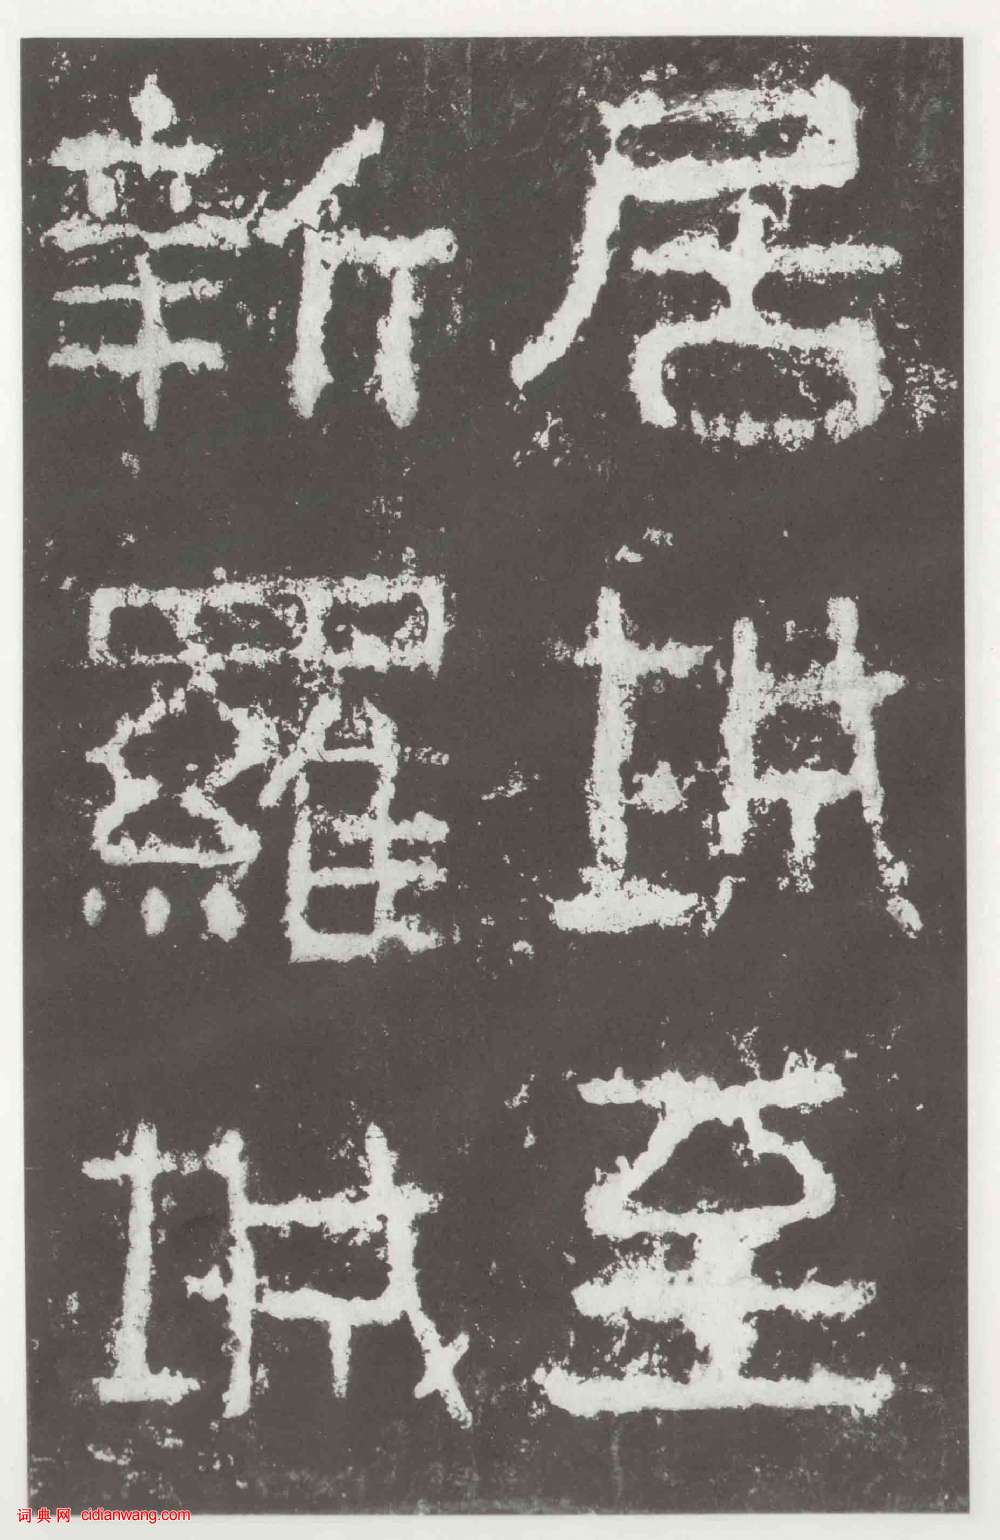 居城至
新羅城
词典网 cidianwang.com